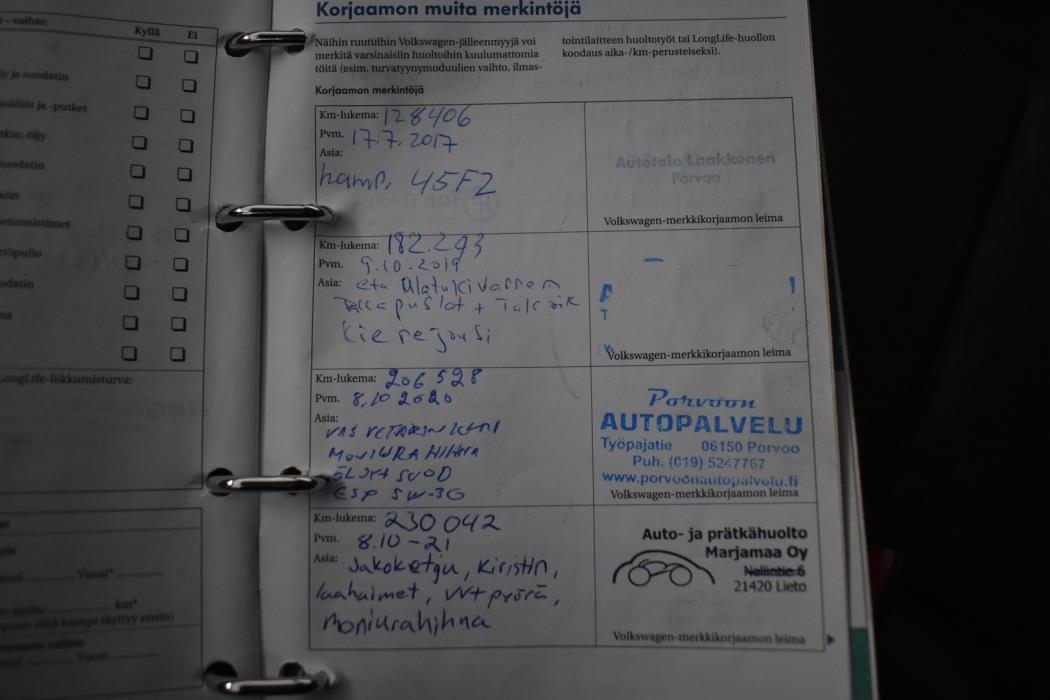 - vaihto:
Kyllä Ei
ja suodatin
ja -putket
öljy
etunnistimet
LongLife-liikkumisturva:
Vuosi*
km*
täyttyy ensin)
vaihto
Vuosi
Korjaamon muita merkintöjä
Näihin ruutuihin Volkswagen-jälleenmyyjä voi
merkitä varsinaisiin huoltoihin kuulumattomia
töitä (esim. turvatyynymoduulien vaihto, ilmas-
tointilaitteen huoltotyöt tai LongLife-huollon
koodaus aika-/km-perusteiseksi).
Korjaamon merkintöjä
Km-lukema: 128406
Pvm. 17.7.2017
Asia:
hamp. 45FZ
Autotalo Laakkonen
Porvoo
Volkswagen-merkkikorjaamon leima
Km-lukema: 182.293
Pvm. 9.10.2019
Asia: etu alatukivarren
Takapuslat +
Kierejousi
Volkswagen-merkkikorjaamon leima
Km-lukema: 206 528
Pvm. 8.10 2020
Asia:
VAS
MONIURAHIHNA
ÖLJY+ SUOD
ESP 5W-30
Porvoon
AUTOPALVELU
Työpajatie 06150 Porvoo
Puh. (019) 5247767
www.porvoonautopalvelu.fi
Volkswagen-merkkikorjaamon leima
Km-lukema: 230 042
Pvm. 8.10-21
Asia: Jakoketju, kiristin,
laahaimet, VVT pyörä,
moniurahihna
Auto- ja prätkähuolto
Marjamaa Oy
Nallintie 6
21420 Lieto
Volkswagen-merkkikorjaamon leima